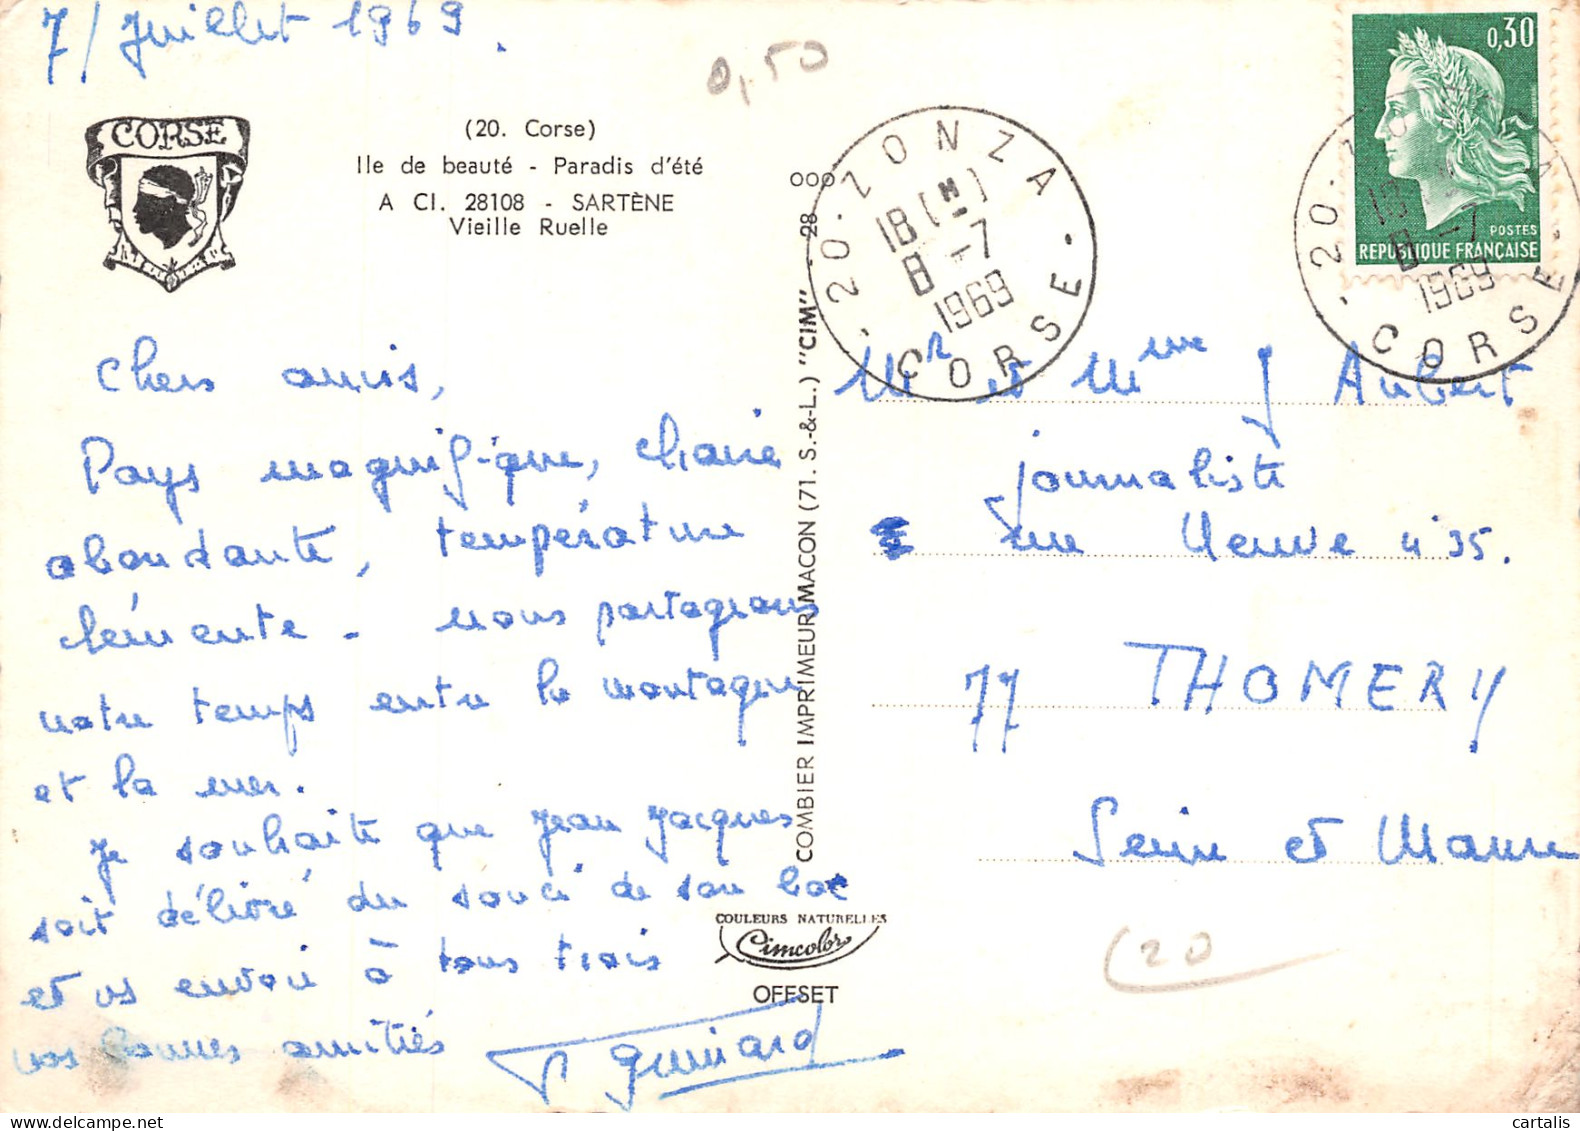 7/ Juillet 1969.
0,50
CORSE
(20. Corse)
Ile de beauté - Paradis d'été
A CI. 28108 - SARTÈNE
Vieille Ruelle
Chers amis,
Pays magnifique, chaire
abondante, température
clémente - nous partageons
notre temps entre la montagne
et la mer.
Je souhaite que Jean Jacques
soit délivré du souci de son bac
et vs envoie à tous trois
nos bonnes amitiés
Guinard
000
28
COMBIER IMPRIMEUR MACON (71. S.-&-L.) "CIM"
COULEURS NATURELLES
Cimcolor
OFFSET
20 - ZONZA
18 (M)
8 - 7
1969
CORSE
0,30
POSTES
REPUBLIQUE FRANÇAISE
20 - ZONZA
18
8 - 7
1969
CORSE
Mr et Mme J Aubert
journaliste
rue Neuve n°35.
77 THOMERY
Seine et Marne
20
cartalis